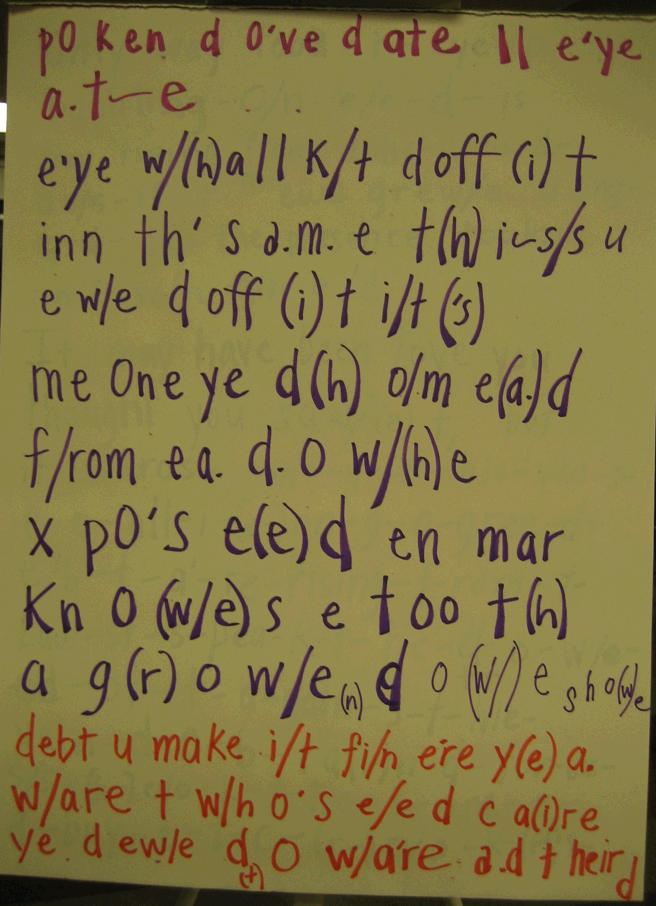 pO ken d O've d ate ll e'ye
a.t—e
e'ye w/(h)all K/t d off (i) t
inn th' s a.m. e t(h) i-s/s u
e w/e d off (i) t i/t ('s)
me One ye d(h) o/m e(a.)d
f/rom ea. d. O w/(h)e
x pO's e(e)d en mar
Kn O (w/e) s e t oo t(h)
a g(r) o w/e(n) d o (w/) e s h o(w)e
debt u make i/t fi/n e're y(e) a.
w/are t w/h o's e/e d c a(i)re
ye d ew/e d(t) O w/a're a.d t heir d